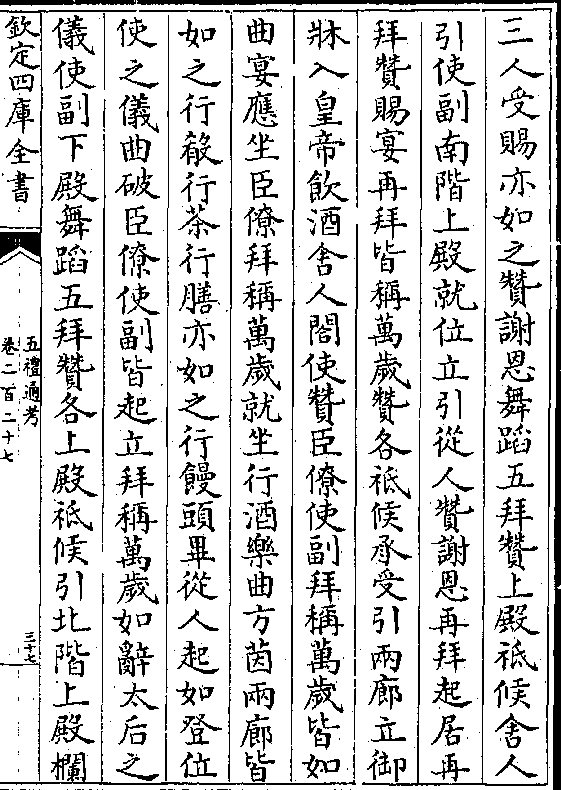 三人受賜亦如之贊謝恩舞蹈五拜贊上殿祗候舍人
引使副南階上殿就位立引從人贊謝恩再拜起居再
拜贊賜宴再拜皆稱萬歲贊各祗候承受引兩廊立御
牀入皇帝飲酒舍人閤使贊臣僚使副拜稱萬歲皆如
曲宴應坐臣僚拜稱萬歲就坐行酒樂曲方茵兩廊皆
如之行殽行茶行膳亦如之行饅頭畢從人起如登位
使之儀曲破臣僚使副皆起立拜稱萬歲如辭太后之
儀使副下殿舞蹈五拜贊各上殿祗候引北階上殿欄
欽定四庫全書
五禮通考
卷二百二十七
三十七